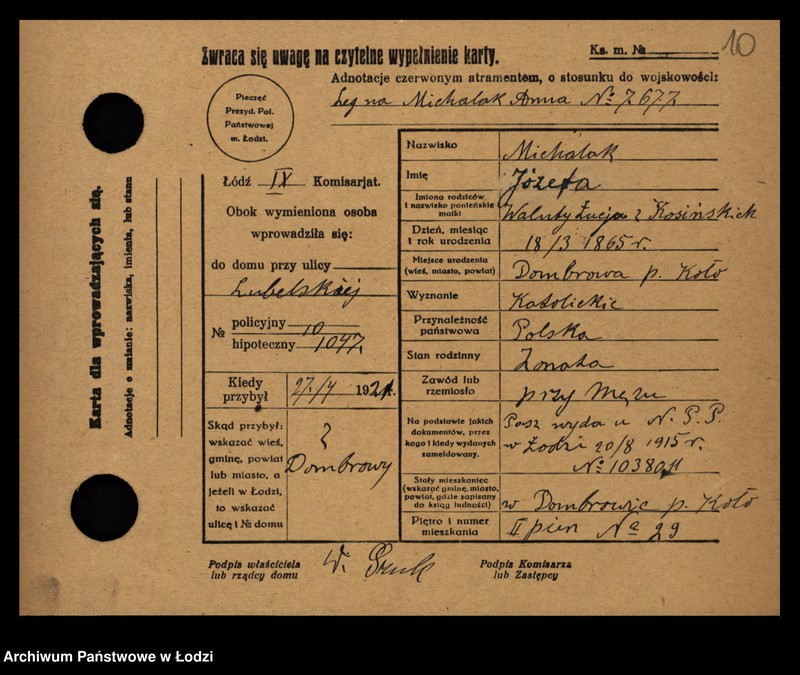 Zwraca się uwagę na czytelne wypełnienie karty.
Ks. m. №
10
Adnotacje czerwonym atramentem, o stosunku do wojskowości:
Leg na Michalak Anna № 7677
Pieczęć
Prezyd. Pol.
Państwowej
m. Łodzi.
Karta dla wprowadzających się.
Adnotacje o zmianie: nazwiska, imienia, lub stanu
Łódź IX Komisarjat.
Obok wymieniona osoba
wprowadziła się:
do domu przy ulicy
Lubelskiej
№ policyjny 10
hipoteczny 1047
Kiedy przybył 27/4 1921r.
Skąd przybył:
wskazać wieś,
gminę, powiat
lub miasto, a
jeżeli w Łodzi,
to wskazać
ulicę i № domu
z
Dombrowy
Nazwisko Michalak
Imię Józefa
Imiona rodziców
i nazwisko panieńskie
matki
Walenty Łucja z Kosińskich
Dzień, miesiąc
i rok urodzenia
18/3 1865 r.
Miejsce urodzenia
(wieś, miasto, powiat)
Dombrowa p. Koło
Wyznanie Katolickie
Przynależność
państwowa
Polska
Stan rodzinny Zonata
Zawód lub
rzemiosło
przy Mężu
Na podstawie jakich
dokumentów, przez
kogo i kiedy wydanych
zameldowany.
Pasz wyda u N. P. P.
w Łodzi 20/8 1915 r.
№ 10380
Stały mieszkaniec
(wskazać gminę, miasto,
powiat, gdzie zapisany
do ksiąg ludności)
w Dombrowie p. Koło
Piętro i numer
mieszkania
II pien № 29
Podpis właściciela
lub rządcy domu
W.
Podpis Komisarza
lub Zastępcy
Archiwum Państwowe w Łodzi